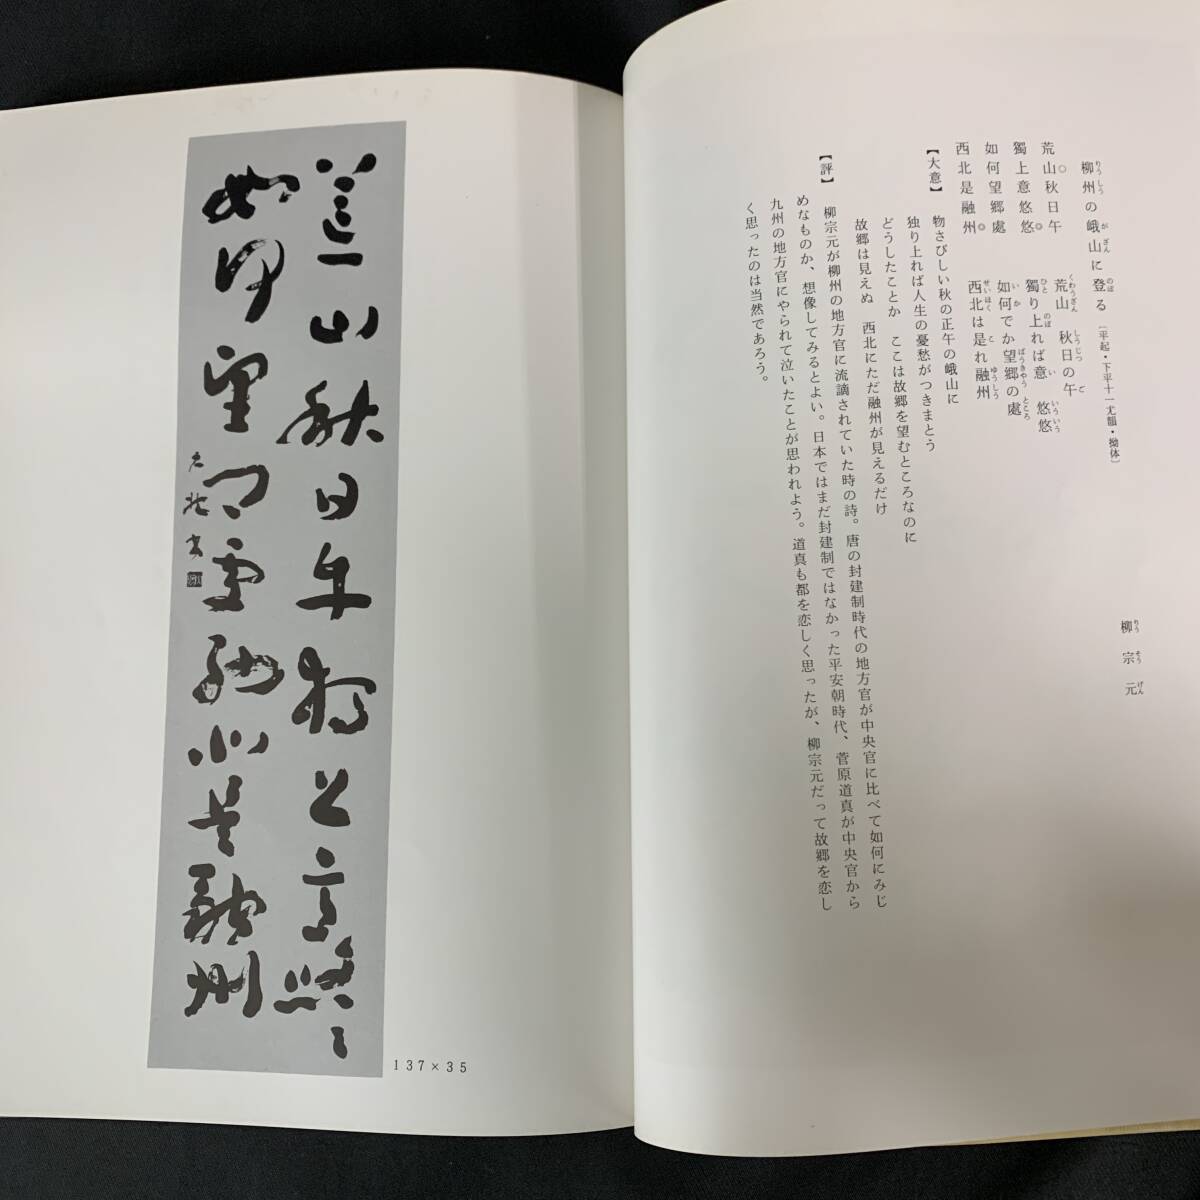 柳州の峨山に登る〔平起・下平十一尤韻・拗体〕
柳宗元
荒山秋日午
獨上意悠悠
如何望郷處
西北是融州
荒山 秋日の午
獨り上れば意 悠悠
如何でか望郷の處
西北は是れ融州
【大意】 物さびしい秋の正午の峨山に
独り上れば人生の憂愁がつきまとう
どうしたことか ここは故郷を望むところなのに
故郷は見えぬ 西北にただ融州が見えるだけ
【評】 柳宗元が柳州の地方官に流謫されていた時の詩。唐の封建制時代の地方官が中央官に比べて如何にみじ
めなものか、想像してみるとよい。日本ではまだ封建制ではなかった平安朝時代、菅原道真が中央官から
九州の地方官にやられて泣いたことが思われよう。道真も都を恋しく思ったが、柳宗元だって故郷を恋し
く思ったのは当然であろう。
荒山秋日午獨上意悠々
如何望郷處西北是融州
137×35